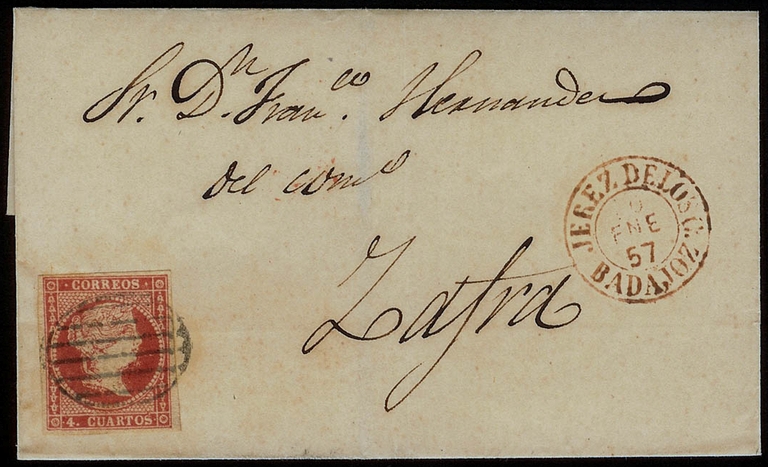 Sr. Dn. Franco. Hernandez
del como
Zafra
JEREZ DE LOS C.
ENE
57
BADAJOZ
CORREOS
4. CUARTOS